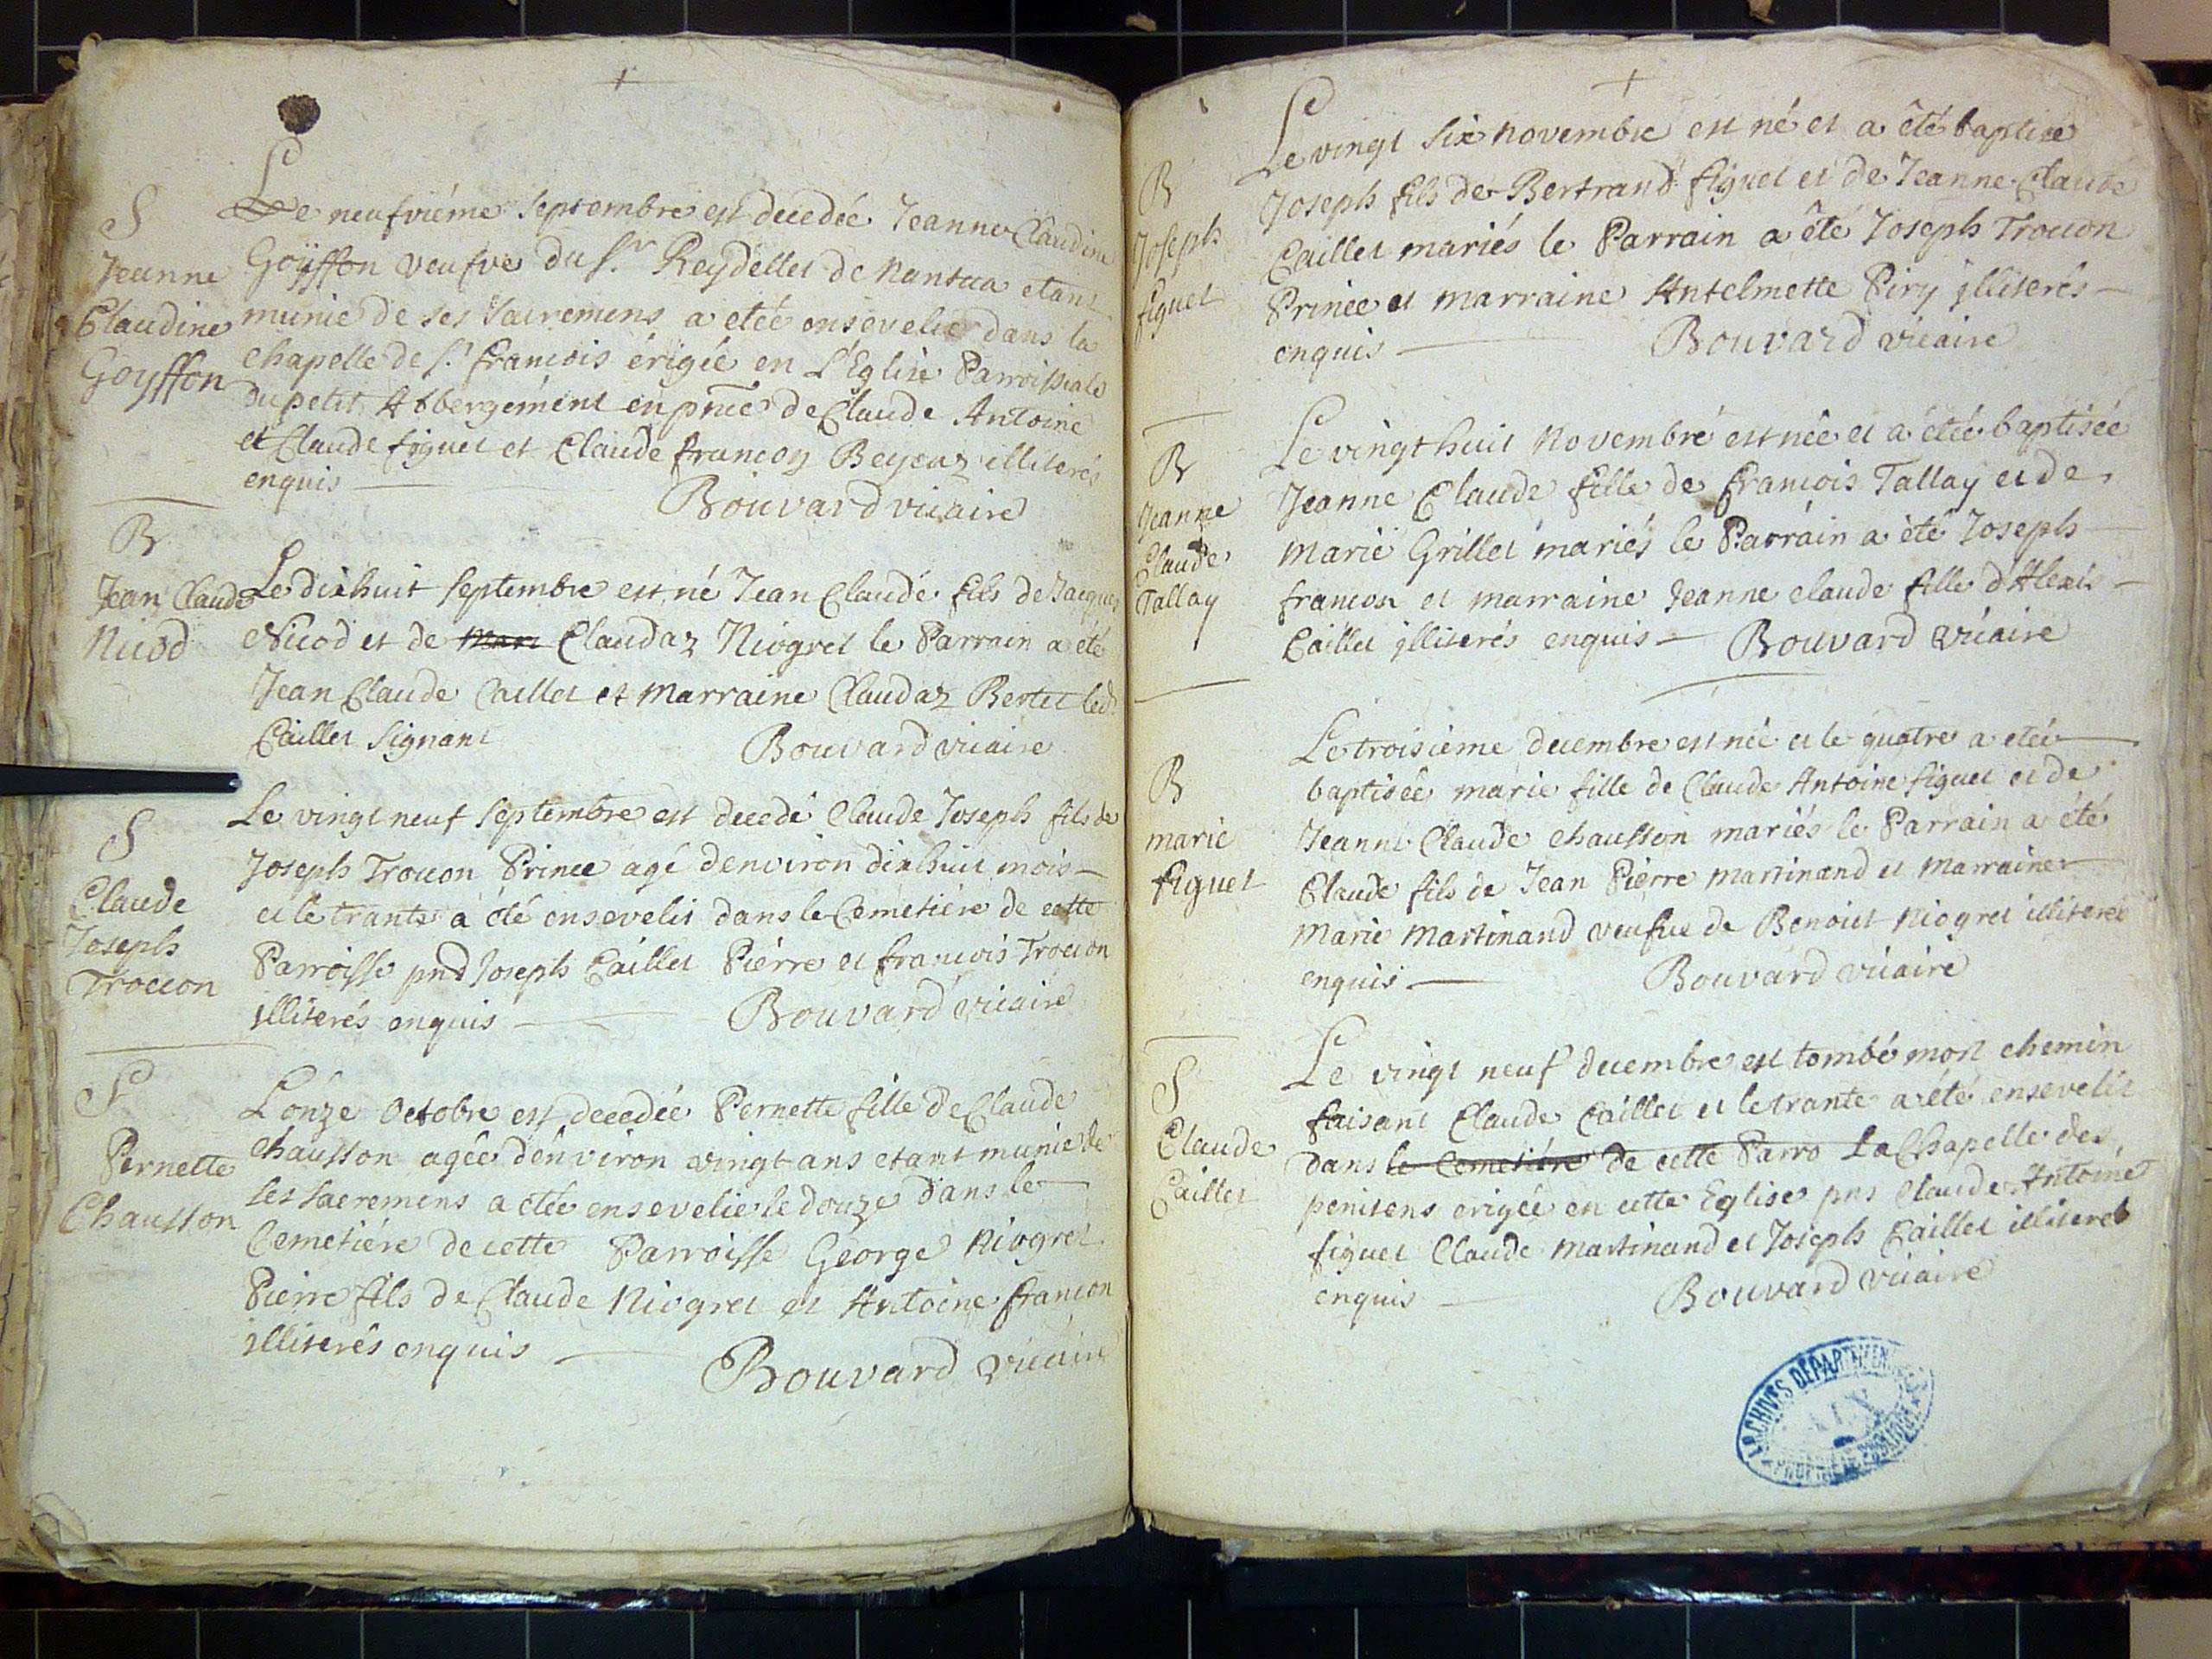 S
Jeanne
Claudine
Goyffon
Le neufviéme Septembre est decedée Jeanne Claudine
Goÿffon veufve du Sr Reydellet de Nantua etant
munie de ses Sacremens a etée ensevelie dans la
chapelle de St françois érigée en L'Eglise Parroissiale
du petit Abbergément en pnce de Claude Antoine
et Claude figuet et Claude françoy Beycaz illiterés
enquis
Bouvard vicaire
B
Jean Claude
Nicod
Le dixhuit Septembre est né Jean Claude fils de Jacques
Nicod et de Mari Claudaz Niogret le Parrain a été
Jean Claude Caillet et Marraine Claudaz Bertet led.
Caillet Signant
Bouvard vicaire
S
Claude
Joseph
Troccon
Le vingt neuf Septembre est decedé Claude Joseph fils de
Joseph Troccon Prince agé denviron dixhuit mois
et le trante a été ensevelit dans le Cemetiére de cette
Parroisse pnd Joseph Caillet Piérre et françois Troccon
illiterés enquis
Bouvard vicaire
S
Pernette
Chausson
L'onze Octobre est decedée Pernette fille de Claude
chausson agée d'énviron vingt ans etant munie de
ses sacremens a etée ensevelie le douze dans le
Cemetiére de cette Parroisse George Niogret
Pierre fils de Claude Niogret et Antoine françon
illiterés enquis
Bouvard vicaire
B
Joseph
figuet
Le vingt Six Novembre est né et a été baptisé
Joseph fils de Bertrand figuet et de Jeanne Claude
Caillet mariés le Parrain a été Joseph Troccon
Prince et marraine Antelmette Piry illiterés
enquis
Bouvard vicaire
B
Jeanne
Claude
Tallay
Le vingthuit Novembre est née et a étée baptisée
Jeanne Claude fille de françois Tallay et de
Marie Grillet mariés le Parrain a été Joseph
françon et marraine Jeanne claude fille d'Alexis
Caillet illiterés enquis
Bouvard vicaire
B
marie
figuet
Le troisiéme decembre est née et le quatre a etée
baptisée marie fille de Claude Antoine figuet et de
Jeanne Claude chausson mariés le Parrain a été
Claude fils de Jean Piérre martinand et Marraine
Marie Martinand veufve de Benoit Niogret illiteréz
enquis
Bouvard vicaire
S
Claude
Caillet
Le vingt neuf decembre est tombé mort chemin
faisant Claude Caillet et le trante a été ensevelit
dans le Cemetiére de cette Parro La Chapelle des
penitens erigée en cette Eglise pns Claude Antoine
figuet Claude Martinand et Joseph Caillet illiteres
enquis
Bouvard vicaire
ARCHIVES DÉPARTEMEN
AIN